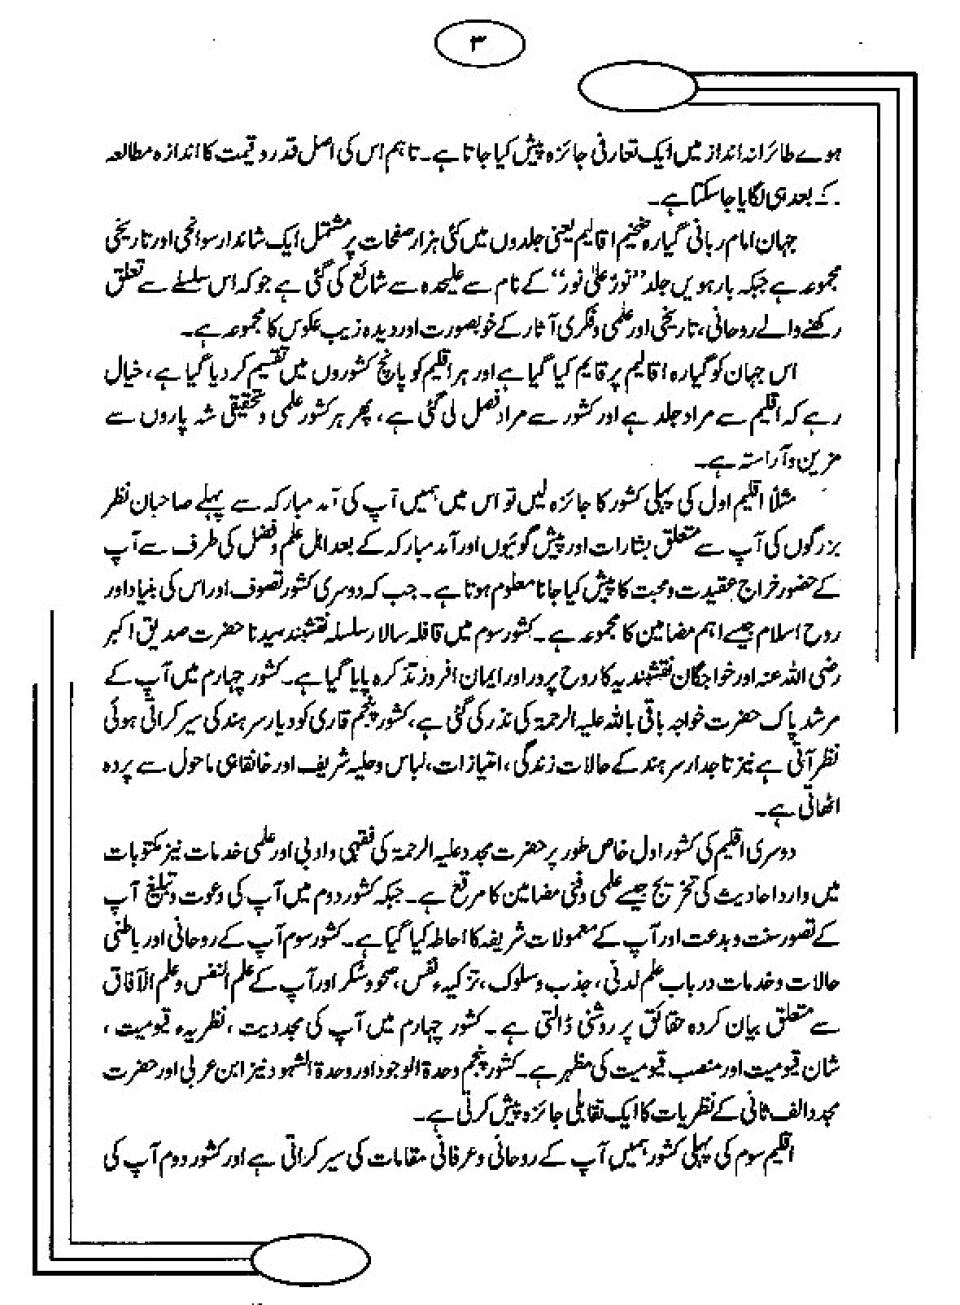 ۳
ہوے طائرانہ انداز میں ایک تعارفی جائزہ پیش کیا جاتا ہے۔ تاہم اس کی اصل قدر و قیمت کا اندازہ مطالعہ
کے بعد ہی لگایا جا سکتا ہے۔
جہان امام ربانی گیارہ ضخیم اقالیم یعنی جلدوں میں کئی ہزار صفحات پر مشتمل ایک شاندار سوانحی اور تاریخی
مجموعہ ہے جبکہ بارہویں جلد ”نورٌ علیٰ نور“ کے نام سے علیحدہ سے شائع کی گئی ہے جو کہ اس سلسلے سے تعلق
رکھنے والے روحانی، تاریخی اور علمی و فکری آثار کے خوبصورت اور دیدہ زیب عکوس کا مجموعہ ہے۔
اس جہان کو گیارہ اقالیم پر قایم کیا گیا ہے اور ہر اقلیم کو پانچ کشوروں میں تقسیم کر دیا گیا ہے، خیال
رہے کہ اقلیم سے مراد جلد ہے اور کشور سے مراد فصل لی گئی ہے، پھر ہر کشور علمی و تحقیقی شہ پاروں سے
مزین و آراستہ ہے۔
مثلاً اقلیم اول کی پہلی کشور کا جائزہ لیں تو اس میں ہمیں آپ کی آمد مبارکہ سے پہلے صاحبان نظر
بزرگوں کی آپ سے متعلق بشارات اور پیش گوئیوں اور آمد مبارکہ کے بعد اہل علم و فضل کی طرف سے آپ
کے حضور خراج عقیدت و محبت کا پیش کیا جانا معلوم ہوتا ہے۔ جب کہ دوسری کشور تصوف اور اس کی بنیاد اور
روح اسلام جیسے اہم مضامین کا مجموعہ ہے۔ کشور سوم میں قافلہ سالار سلسلہ نقشبند سیدنا حضرت صدیق اکبر
رضی اللہ عنہ اور خواجگان نقشبندیہ کا روح پرور اور ایمان افروز تذکرہ پایا گیا ہے۔ کشور چہارم میں آپ کے
مرشد پاک حضرت خواجہ باقی باللہ علیہ الرحمۃ کی نذر کی گئی ہے، کشور پنجم قاری کو دیار سرہند کی سیر کراتی ہوئی
نظر آتی ہے نیز تاجدار سرہند کے حالات زندگی، امتیازات، لباس و حلیہ شریف اور خانقاہی ماحول سے پردہ
اٹھاتی ہے۔
دوسری اقلیم کی کشور اول خاص طور پر حضرت مجدد علیہ الرحمۃ کی فقہی و ادبی اور علمی خدمات نیز مکتوبات
میں وارد احادیث کی تخریج جیسے علمی و فنی مضامین کا مرقع ہے۔ جبکہ کشور دوم میں آپ کی دعوت و تبلیغ آپ
کے تصور سنت و بدعت اور آپ کے معمولات شریفہ کا احاطہ کیا گیا ہے۔ کشور سوم آپ کے روحانی اور باطنی
حالات و خدمات در باب علم لدنی، جذب و سلوک، تزکیہء نفس، صحو و سُکر اور آپ کے علم النفس و علم الآفاق
سے متعلق بیان کردہ حقائق پر روشنی ڈالتی ہے۔ کشور چہارم میں آپ کی مجددیت، نظریہء قیومیت،
شان قیومیت اور منصب قیومیت کی مظہر ہے۔ کشور پنجم وحدۃ الوجود اور وحدۃ الشہود نیز ابن عربی اور حضرت
مجدد الف ثانی کے نظریات کا ایک تقابلی جائزہ پیش کرتی ہے۔
اقلیم سوم کی پہلی کشور ہمیں آپ کے روحانی و عرفانی مقامات کی سیر کراتی ہے اور کشور دوم آپ کی